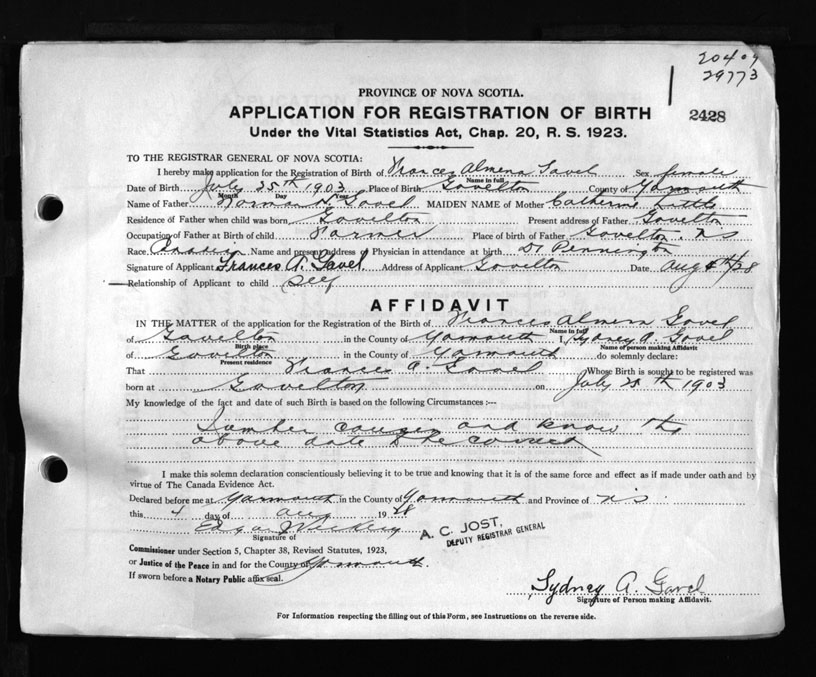 20404
29773
PROVINCE OF NOVA SCOTIA.
APPLICATION FOR REGISTRATION OF BIRTH
2428
Under the Vital Statistics Act, Chap. 20, R. S. 1923.
TO THE REGISTRAR GENERAL OF NOVA SCOTIA:
I hereby make application for the Registration of Birth of Frances Almena Gavel Sex female
Name in full
Date of Birth July 25th 1903 Place of Birth Gavelton County of Yarmouth
Month Day Year
Name of Father Norman H. Gavel MAIDEN NAME of Mother Catherine Little
Residence of Father when child was born Gavelton Present address of Father Gavelton
Occupation of Father at Birth of child Farmer Place of birth of Father Gavelton. NS
Race Name and present address of Physician in attendance at birth Dr Pennington
Signature of Applicant Frances A. Gavel Address of Applicant Gavelton Date Aug 4/28
Relationship of Applicant to child Self
AFFIDAVIT
IN THE MATTER of the application for the Registration of the Birth of Frances Almena Gavel
Name in full
of Gavelton in the County of Yarmouth I, Sydney A. Gavel
Birth place Name of person making Affidavit
of Gavelton in the County of Yarmouth do solemnly declare:
Present residence
That Frances A. Gavel Whose Birth is sought to be registered was
born at Gavelton on July 25th 1903
My knowledge of the fact and date of such Birth is based on the following Circumstances :—
and know the
above date to be correct
I make this solemn declaration conscientiously believing it to be true and knowing that it is of the same force and effect as if made under oath and by
virtue of The Canada Evidence Act.
Declared before me at Yarmouth in the County of Yarmouth and Province of NS
this 4 day of Aug 1928
Edgar
Signature of
A. C. JOST,
DEPUTY REGISTRAR GENERAL
Commissioner under Section 5, Chapter 38, Revised Statutes, 1923,
or Justice of the Peace in and for the County of Yarmouth.
If sworn before a Notary Public affix seal.
Sydney A. Gavel
Signature of Person making Affidavit.
For Information respecting the filling out of this Form, see Instructions on the reverse side.